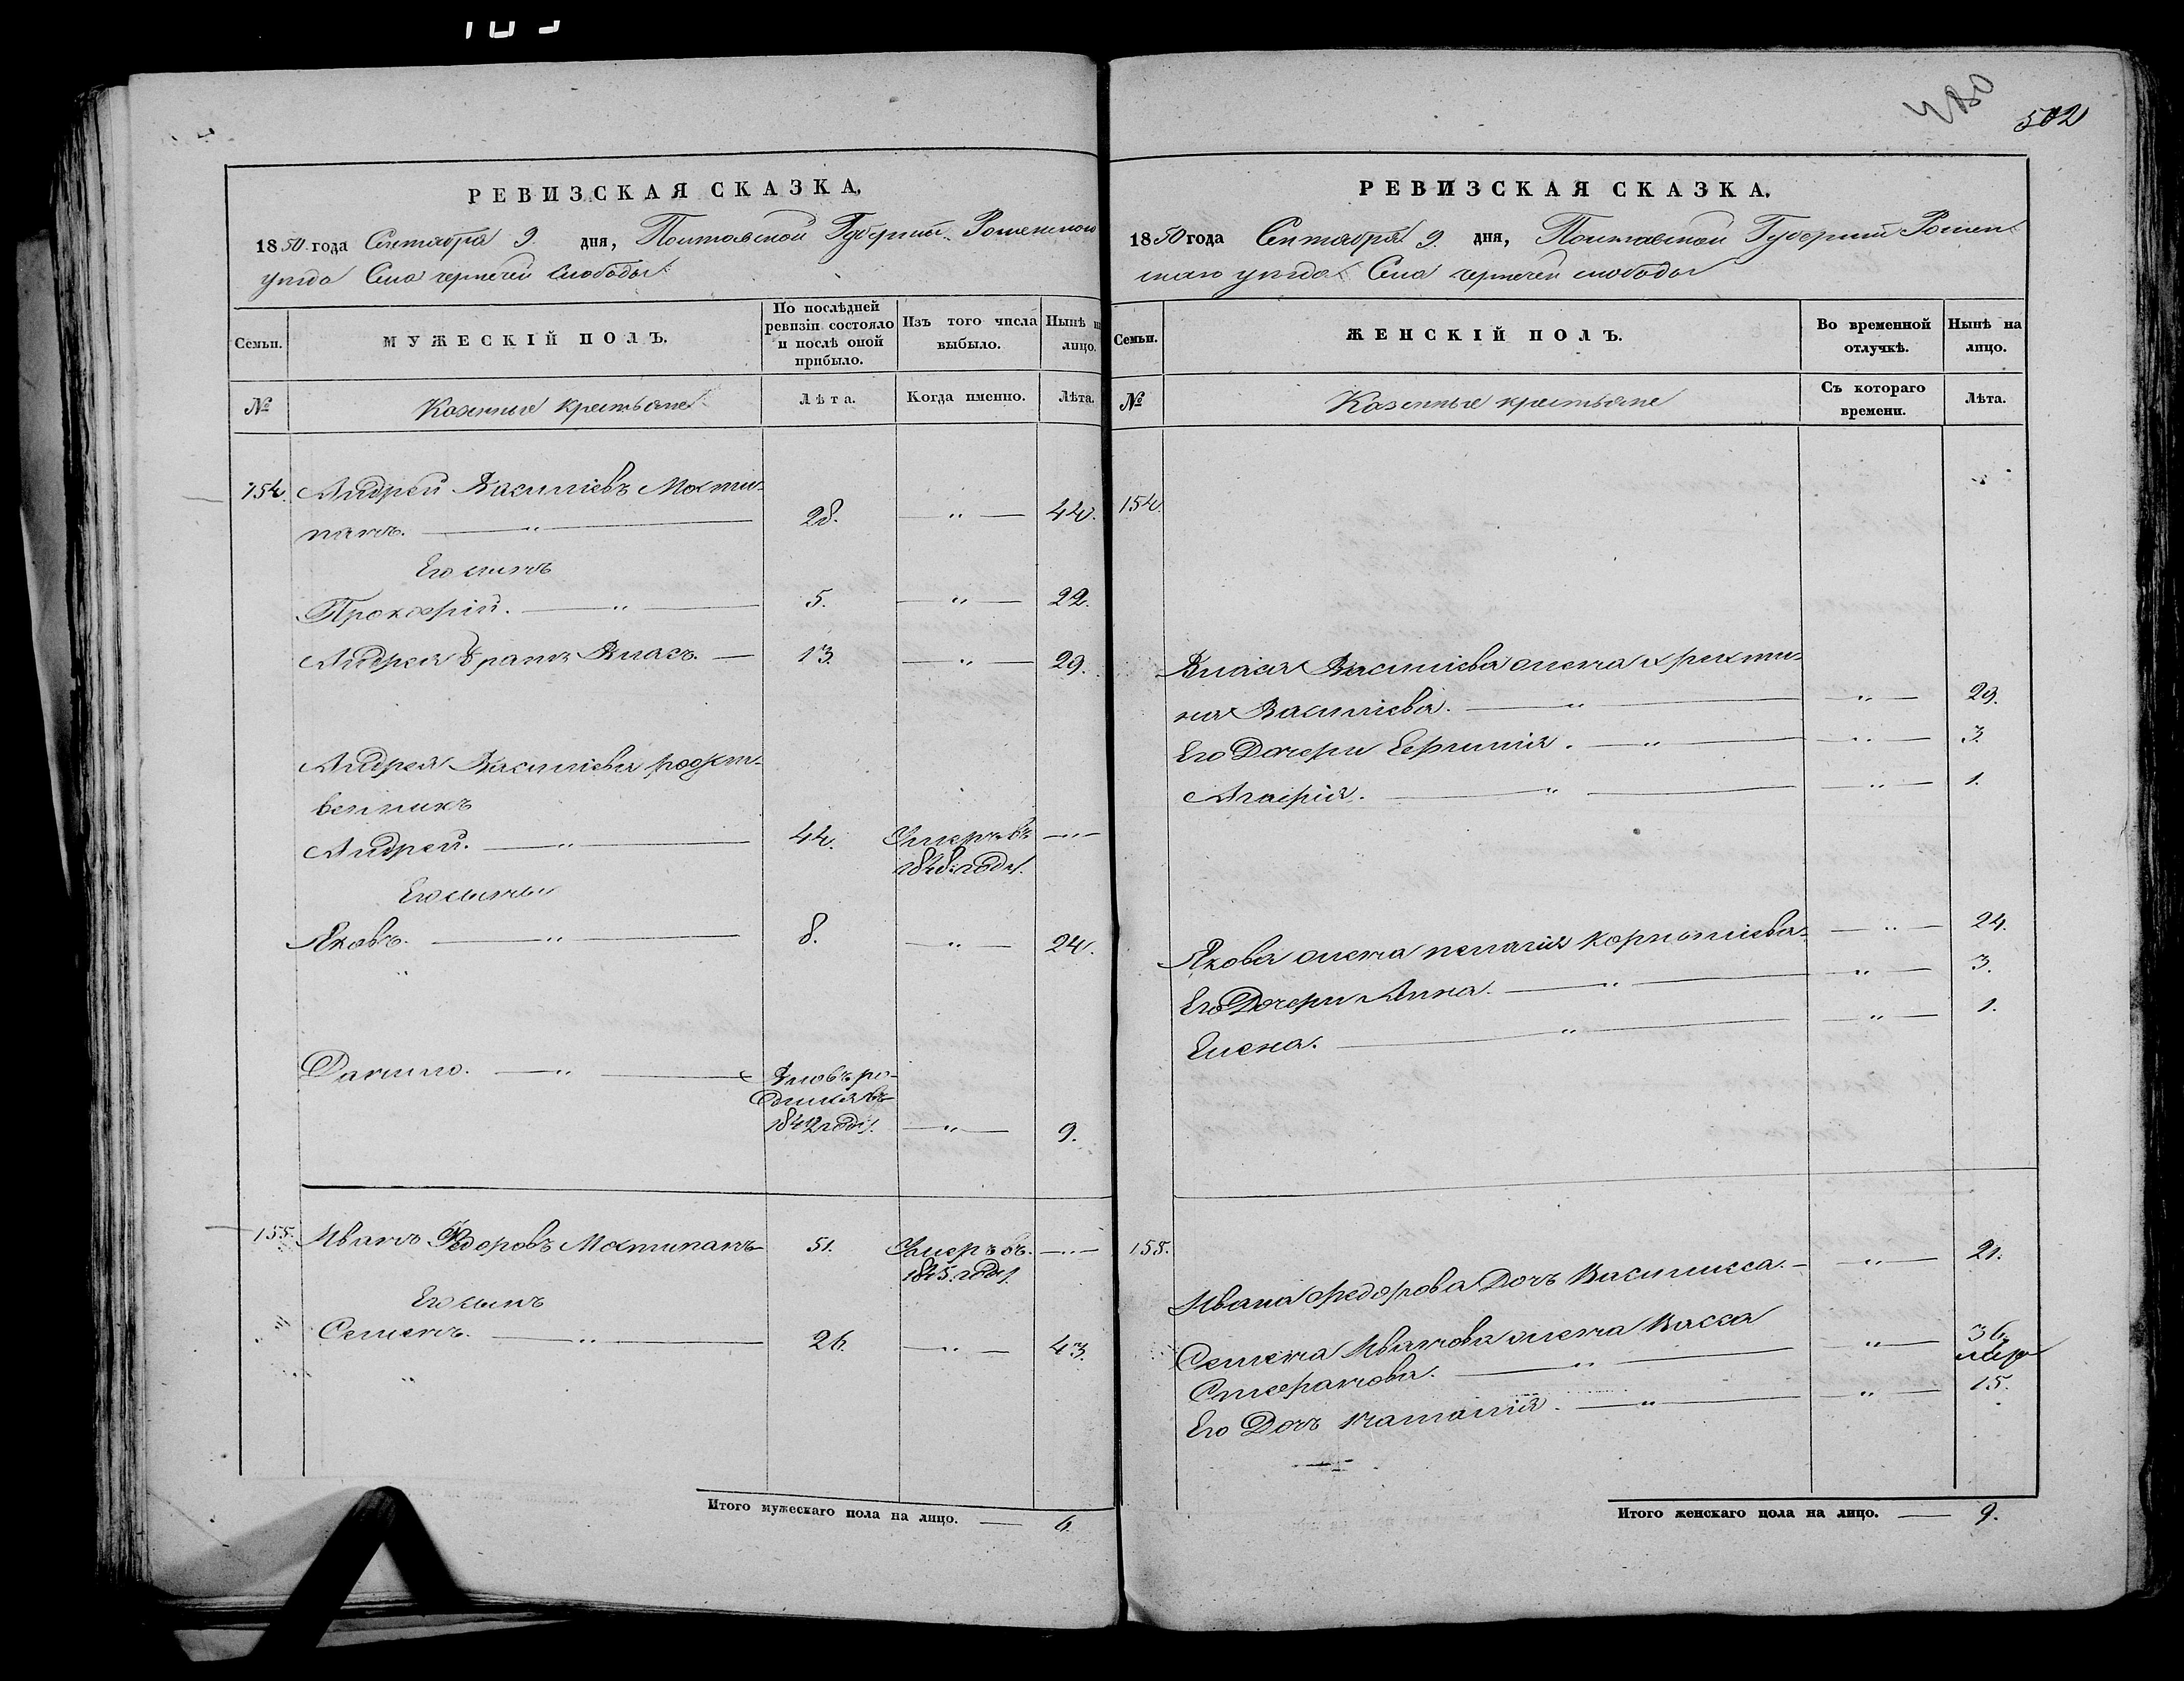 480
502
РЕВИЗСКАЯ СКАЗКА.
1850 года Сентября 9. дня, Полтавской Губернии Роменского
уезда Села чернечей слободы
Семьи.
МУЖЕСКІЙ ПОЛЪ.
По послѣдней ревизіи состояло и послѣ оной прибыло.
Изъ того числа выбыло.
Нынѣ на лицо.
№
Казенные крестьяне
Лѣта.
Когда именно.
Лѣта.
154. Андрей Василіевъ
28. 44.
Его сынъ
Прокофій. 5. 22.
Андрея братъ Власъ. 13. 29.
Андрея Василіева родст-
венникъ
Андрей. 44. Умеръ въ
1848. году.
Его сыны
Яковъ. 8. 24.
Данило. Вновь ро-
дился въ
1842 году. 9.
155. Иванъ Федоровъ 51. Умеръ въ
1845. году.
Его сынъ
Семенъ. 26. 43.
Итого мужескаго пола на лицо. 6.
РЕВИЗСКАЯ СКАЗКА.
1850 года Сентября 9. дня, Полтавской Губернии Ромен
скаго уезда Села чернечей слободы
Семьи.
ЖЕНСКІЙ ПОЛЪ.
Во временной отлучкѣ.
Нынѣ на лицо.
№
Казенные крестьяне
Съ котораго времени.
Лѣта.
154.
Власа Василіева жена христи-
на Василіева. 29.
Его Дочери Ефимія. 3.
Агафія. 1.
Якова жена пелагія корниліева. 24.
Его Дочери Анна. 3.
Елена. 1.
155.
Ивана федорова Дочь Василисса. 21.
Семена Иванова жена Васса
Стефанова. 36
Его Дочь наталія. 15.
Итого женскаго пола на лицо. 9.